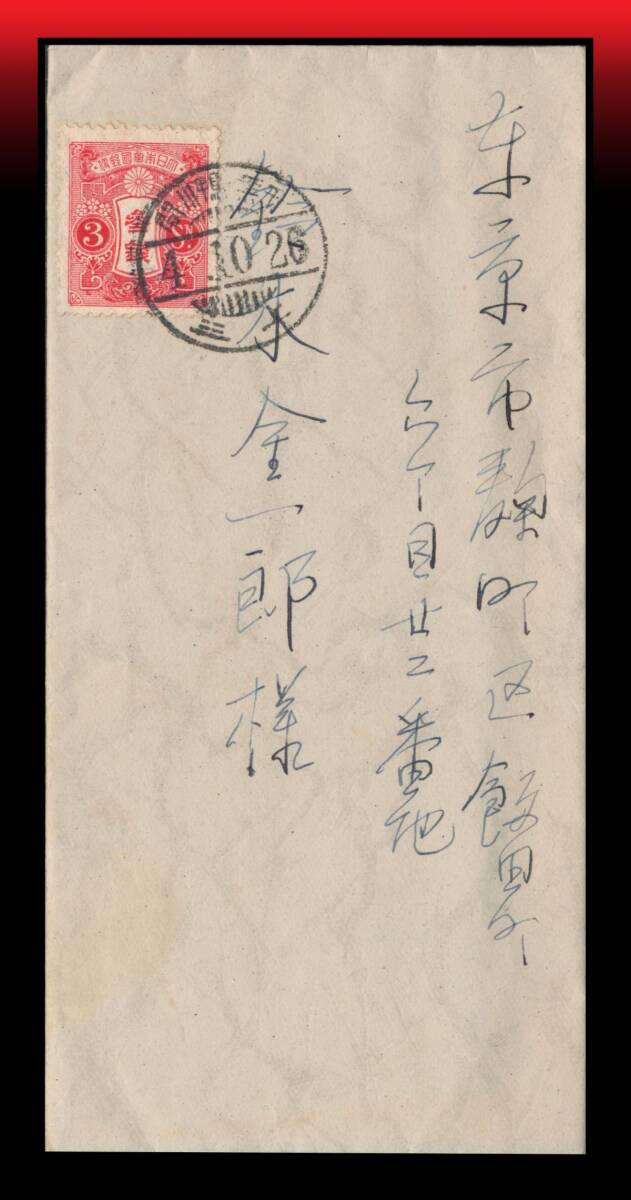 東京市麹町区飯田町
六丁目廿二番地
金一郎様
大日本帝國郵便
3
参銭
4.10.26